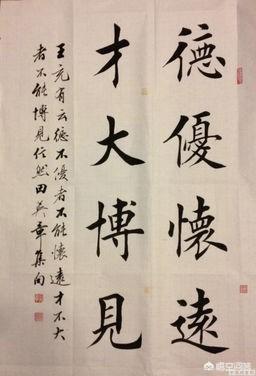 德優懷遠
才大博見
王充有云德不優者不能懷遠才不大
者不能博見信然田英章集句
悟空问答